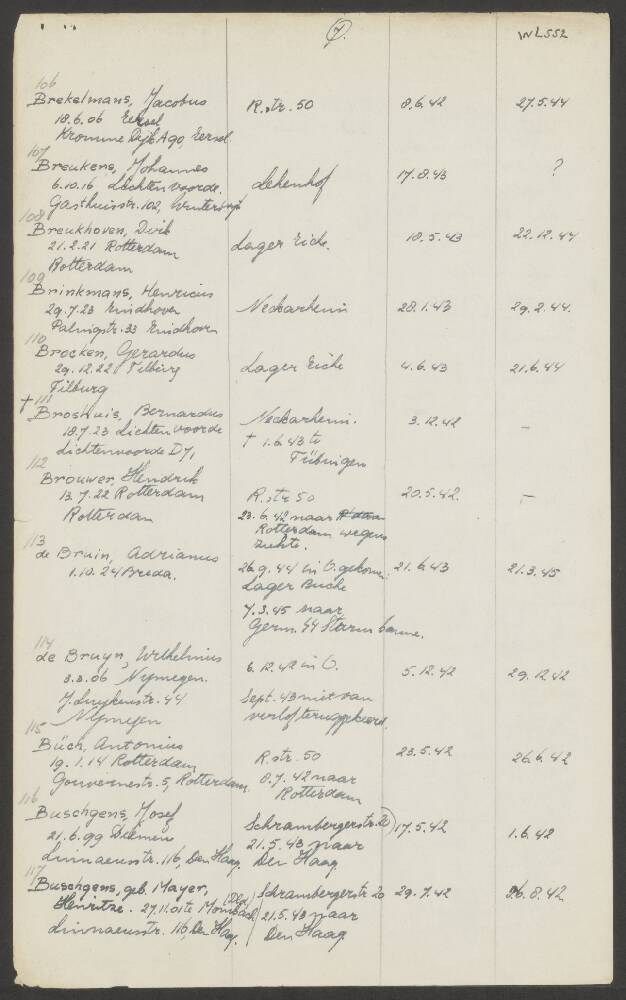 7.
WL552
106
Brekelmans, Jacobus R.str. 50 8.6.42 27.5.44
18.6.06 Eersel
Kromme Dijk A90, Eersel
107
Breukers, Johannes Lehenhof 17.8.43 ?
6.10.16 Lichtenvoorde.
Gasthuisstr. 102, Winterswijk
108
Breukhoven, Dirk Lager Eiche. 18.5.43 22.12.44
21.2.21 Rotterdam
Rotterdam
109
Brinkmans, Henricus Neckarheim 28.1.43 29.2.44.
29.7.23 Eindhoven
33 Eindhoven
110
Brocken, Gerardus Lager Eiche 4.6.43 21.6.44
29.12.22 Tilburg
Tilburg
† 111
Broshuis, Bernardus Neckarheim. 3.12.42 -
18.7.23 Lichtenvoorde † 1.6.43 te
Lichtenvoorde D71 Tübingen
112
Brouwer, Hendrik
13.7.22 Rotterdam R.str 50 20.5.42. -
Rotterdam 23.6.42 naar
Rotterdam wegens
ziekte.
113
de Bruin, Adrianus 26.9.44 in O. gekomen 21.6.43 21.3.45
1.10.24 Breda. Lager Buche
7.3.45 naar
Germ. SS Sturmbanne.
114
de Bruyn, Wilhelmus 6.12.42 in O. 5.12.42 29.12.42
3.3.06 Nijmegen.
J. Luykenstr. 44 Sept. 43 niet van
Nijmegen verlof teruggekeerd.
115
Büch, Antonius R.str. 50 23.5.42 26.6.42
19.1.14 Rotterdam 8.7.42 naar
Gouvernestr. 5, Rotterdam. Rotterdam
116
Buschgens, Josef Schrambergerstr. 20) 17.5.42 1.6.42
21.6.99 Diemen 21.5.43 naar
Linnaeusstr. 116, Den Haag. Den Haag
117
Buschgens, geb. Mayer, Schrambergerstr 20 29.7.42 26.8.42
27.11.01 te Mombach (Dld) 21.5.43 naar
Linnaeusstr. 116, Den Haag. Den Haag